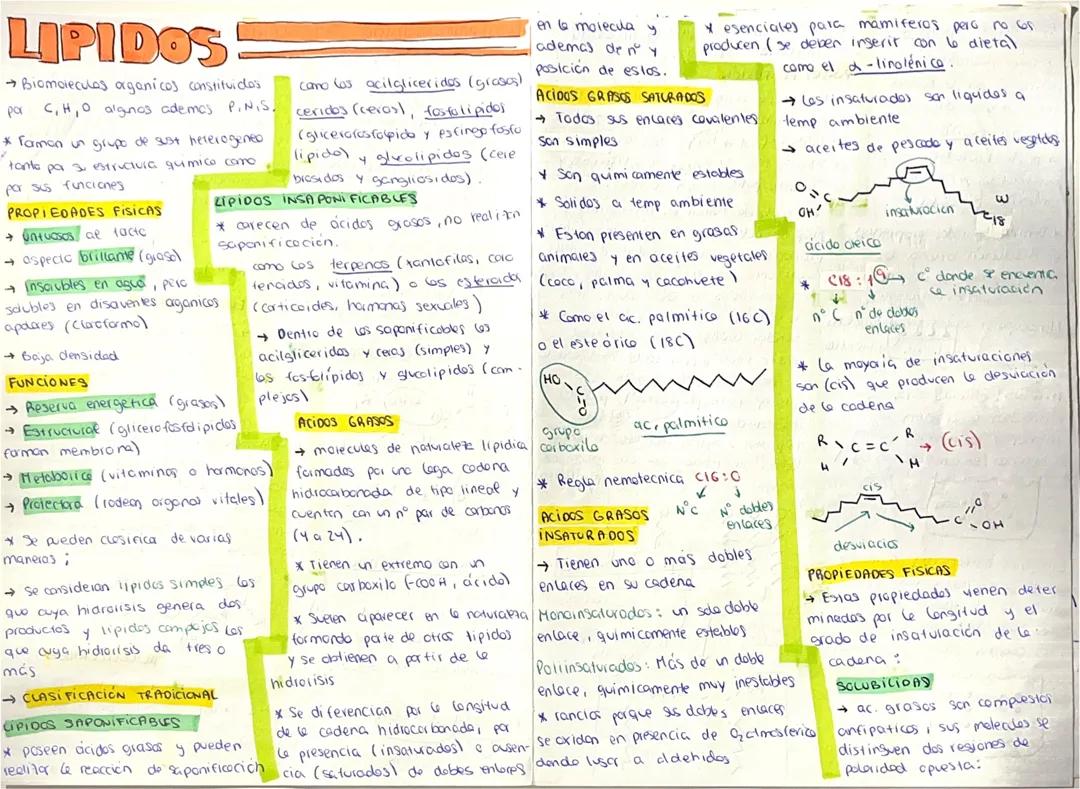 LIPIDOS
→ Biomoleculas organicas constituidas
por C, H, O algnos ademas P, N, S.
* Forman un grupo de sust heterogeneo
tanto por su estructura quimica como
por sus funciones
PROPIEDADES FISICAS
→ untuosos al tacto
→ aspecto brillante (graso)
→ Insolubles en agua, pero
solubles en disolventes organicos
apolares (cloroformo)
→ Baja densidad
FUNCIONES
→ Reserva energetica (grasas)
→ Estructural (glicerofosfolipidos
forman membrana)
→ Metabolica (vitaminas o hormonas)
→ Protectora (rodean organos vitales)
* Se pueden clasificar de varias
maneras ;
→ se consideran lipidos simples los
que cuya hidrolisis genera dos
productos y lipidos complejos los
que cuya hidrolisis da tres o
más
→ CLASIFICACIÓN TRADICIONAL
LIPIDOS SAPONIFICABLES
* poseen ácidos grasos y pueden
realizar la reacción de saponificación
como los acilgliceridos (grasas)
ceridos (ceras), fosfolipidos
(glicerofosfolípido y esfingofosfo
lipido) y glucolipidos (cere
brosidos y gangliosidos).
LIPIDOS INSAPONIFICABLES
* carecen de ácidos grasos, no realizan
saponificación.
como los terpenos (xantofilas, caro
tenoides, vitamina) o los esteroides
(corticoides, hormonas sexuales)
→ Dentro de los saponificables los
acilgliceridos y ceras (simples) y
los fosfolípidos y glucolipidos (com-
plejos)
ACIDOS GRASOS
→ moleculas de naturaleza lipidica
formados por una larga cadena
hidrocarbonada de tipo lineal y
cuentan con un nº par de carbonos
(4 a 24).
* Tienen un extremo con un
grupo carboxilo (-COOH, ácido)
* Suelen aparecer en la naturaleza
formando parte de otros lipidos
y se obtienen a partir de la
hidrolisis
* Se diferencian por la longitud
de la cadena hidrocarbonada, por
la presencia (insaturados) o ausen-
cia (saturados) de dobles enlaces
en la molecula y
ademas de nº y
posición de estos.
ACIDOS GRASOS SATURADOS
→ Todos sus enlaces covalentes
son simples
* Son quimicamente estables
* Solidos a temp ambiente
* Estan presenten en grasas
animales y en aceites vegetales
(coco, palma y cacahuete)
* Como el ac. palmitico (16C)
o el esteárico (18C)
HO
C
O
grupo
carboxilo
ac. palmitico
* Regla nemotecnica C16:0
Nº C
Nº dobles
enlaces
ACIDOS GRASOS
INSATURADOS
→ Tienen uno o más dobles
enlaces en su cadena
Monoinsaturados: un solo doble
enlace, químicamente estables
Poliinsaturados: Más de un doble
enlace, quimicamente muy inestables
* rancios porque sus dobles enlaces
se oxidan en presencia de O2 atmosferico
dando lugar a aldehidos
* esenciales para mamiferos pero no los
producen (se deben inserir con la dieta)
como el α-linolénico.
→ Los insaturados son liquidos a
temp ambiente
→ aceites de pescado y aceites vegetales
O
C
OH
insaturacion
ω
C18
ácido oleico
* C18:1⑨ → Cº donde se encuentra
la insaturación
nº C
nº de dobles
enlaces
* La mayoria de insaturaciones
son (cis) que producen la desviación
de la cadena
R R
C=C → (cis)
H H
cis
O
C-OH
desviacion
PROPIEDADES FISICAS
→ Estas propiedades vienen deter
minadas por la longitud y el
grado de insaturación de la
cadena :
SOLUBILIDAD
→ ac. grasos son compuestos
anfipaticos, sus moleculas se
distinguen dos regiones de
polaridad opuesta: